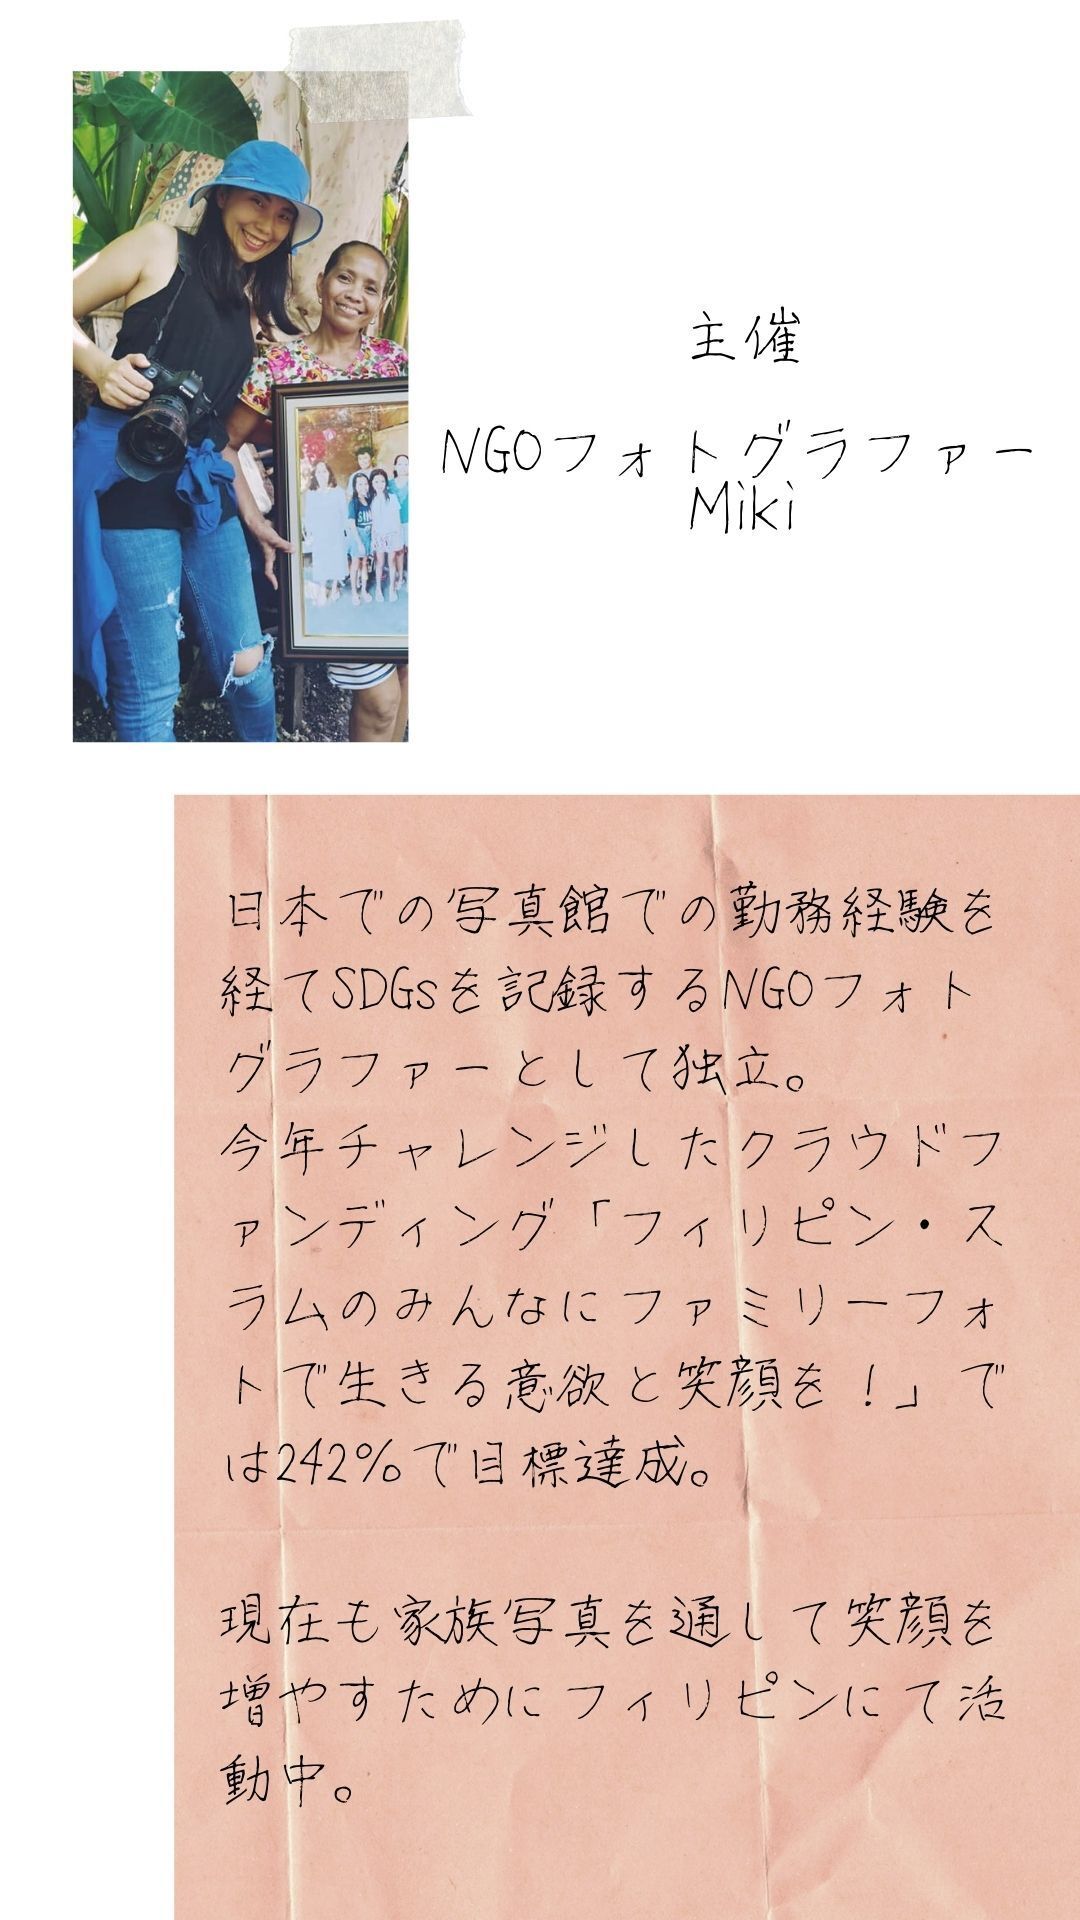 主催
NGOフォトグラファー
Miki
日本での写真館での勤務経験を
経てSDGsを記録するNGOフォト
グラファーとして独立。
今年チャレンジしたクラウドフ
ァンディング「フィリピン・ス
ラムのみんなにファミリーフォ
トで生きる意欲と笑顔を！」で
は242%で目標達成。
現在も家族写真を通して笑顔を
増やすためにフィリピンにて活
動中。